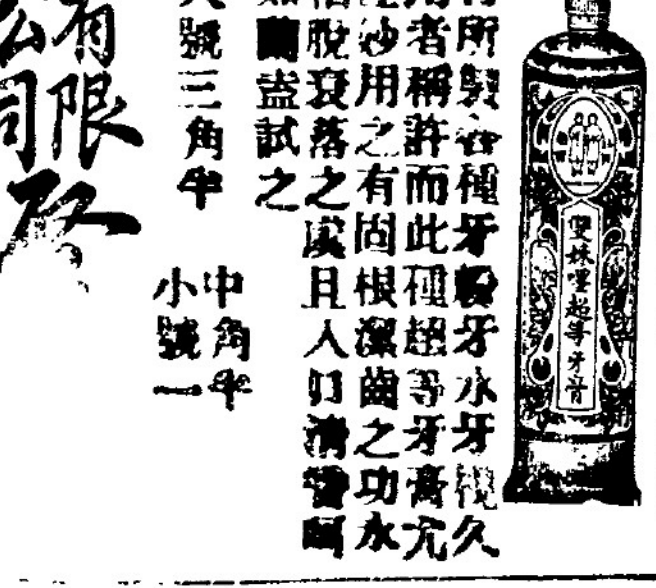 雙妹嘜超等牙膏
所製各種牙粉牙水牙枧久
者稱許而此種超等牙膏尤
妙用之有固根潔齒之功永
脫衰落之虞且入口清香
蘭盍試之
號三角半
中角半
小號一
有限
公司
啓